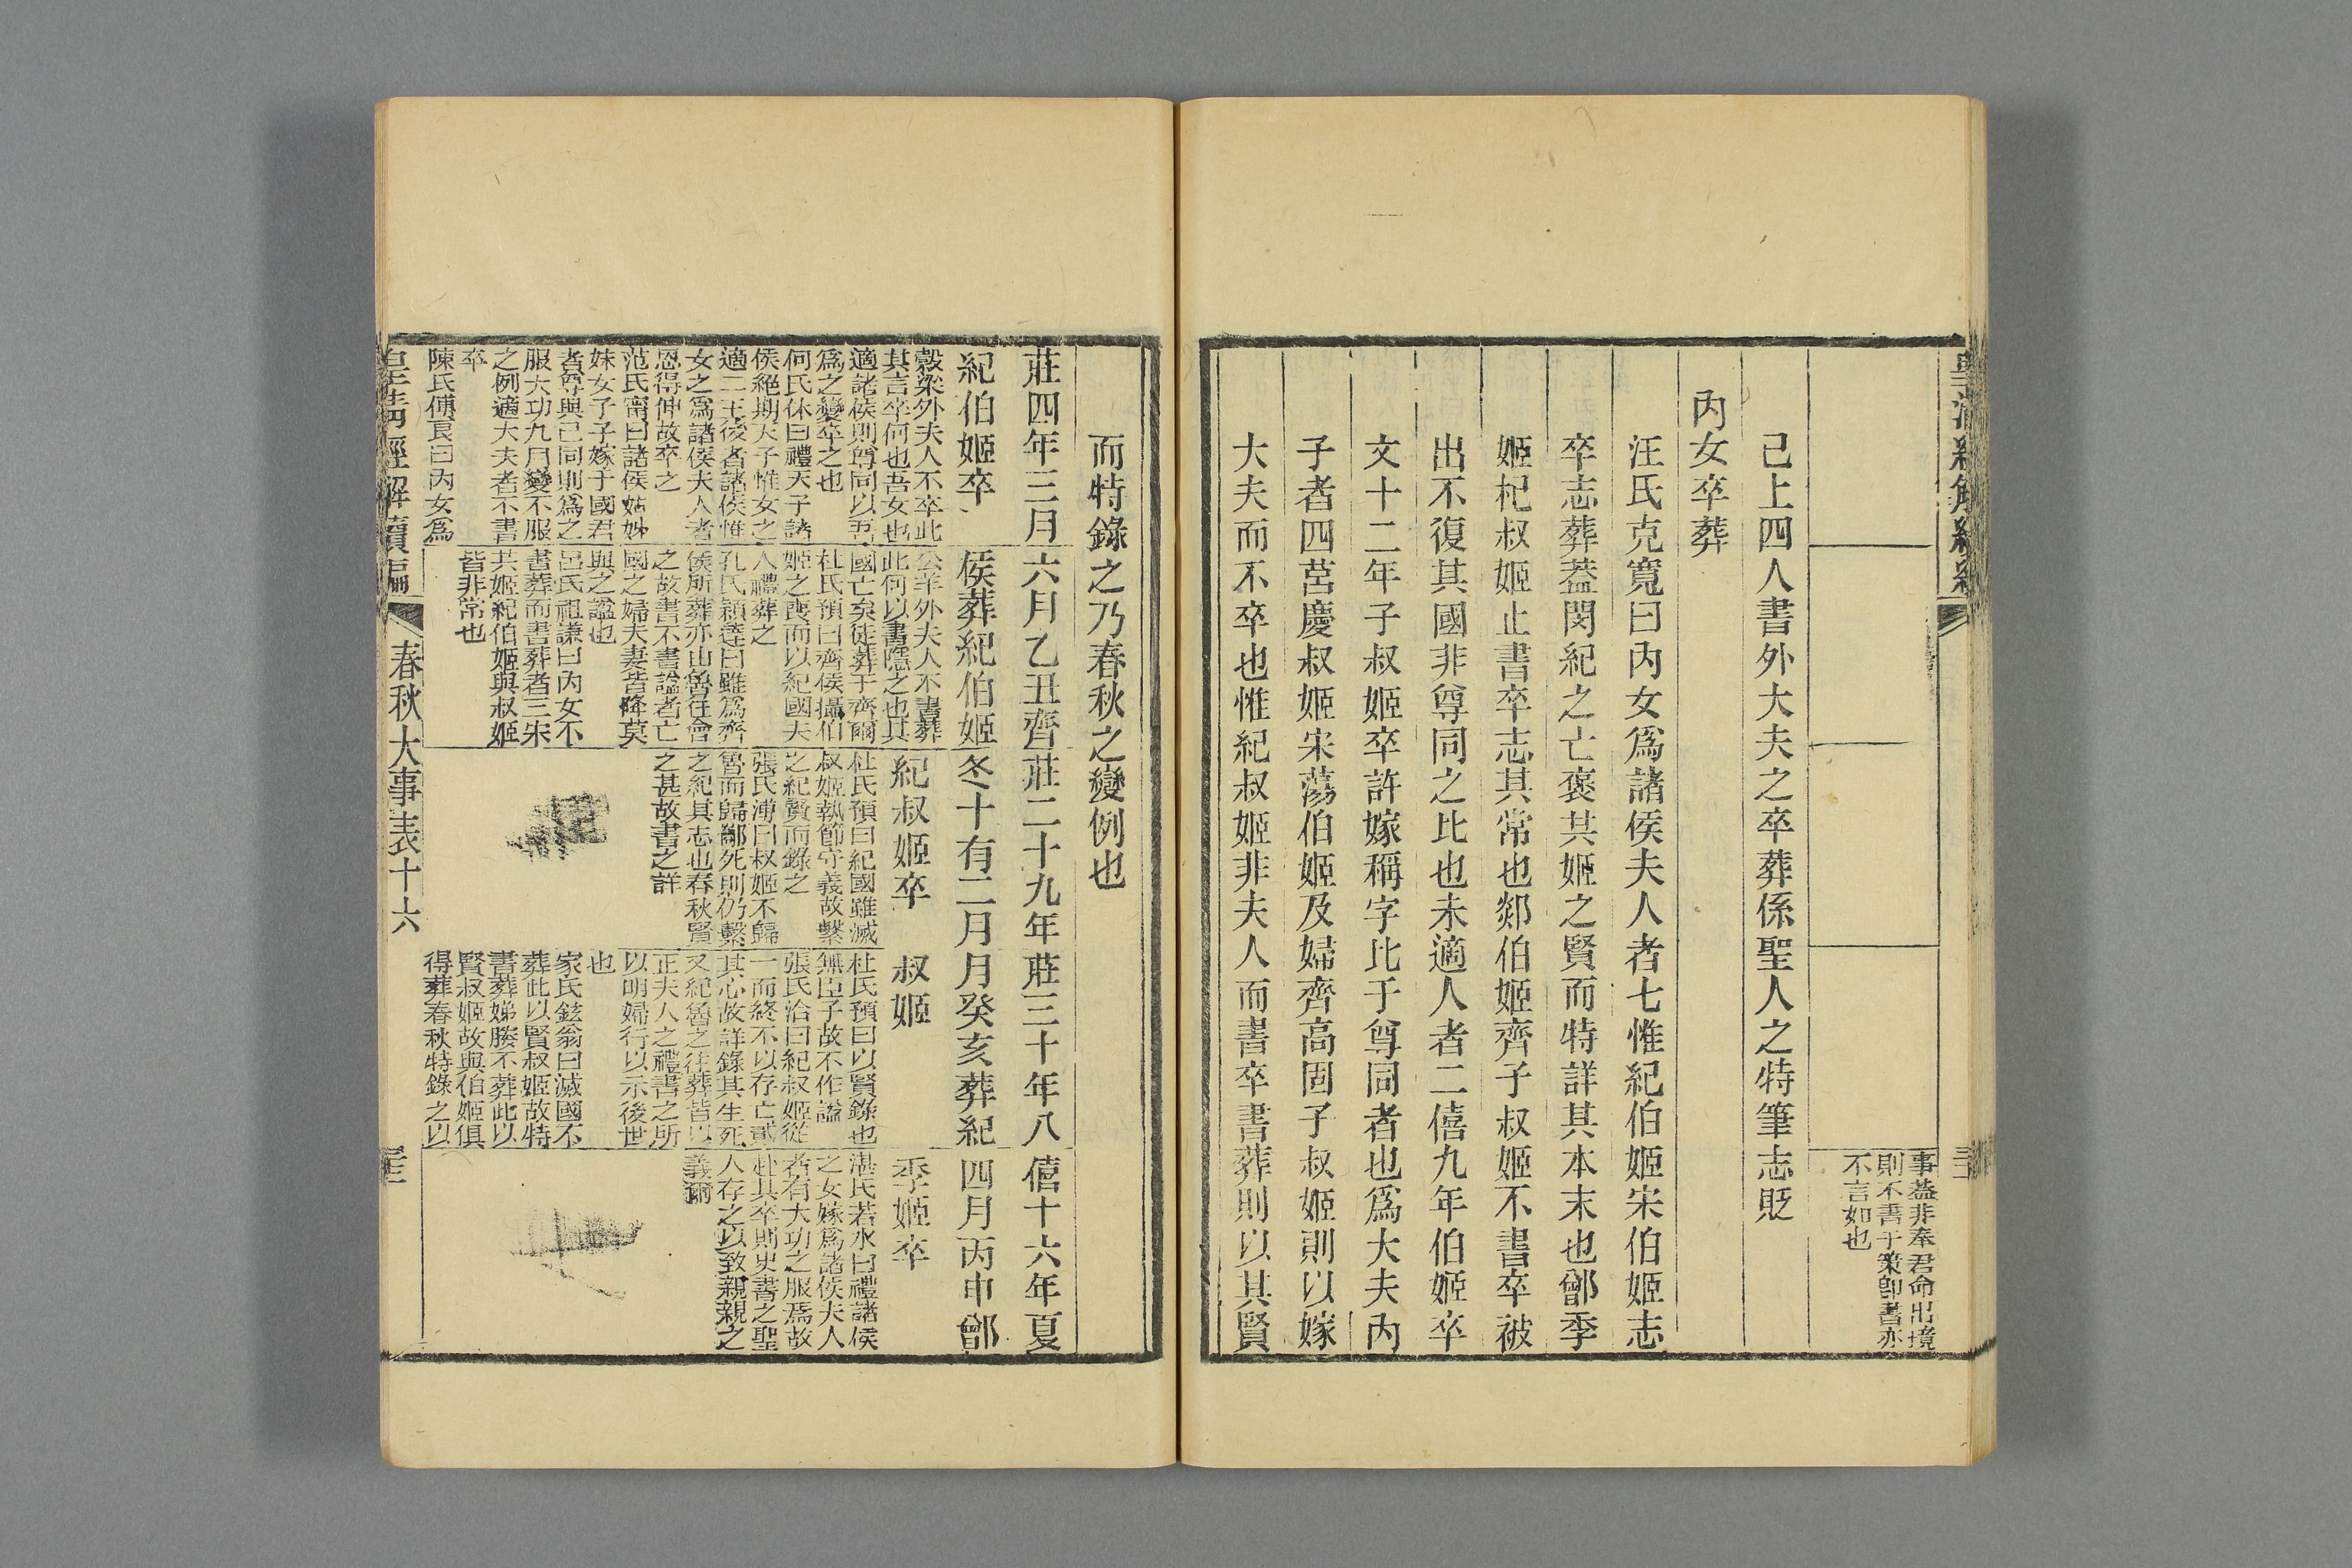 事葢非奉君命出境
則不書于策卽書亦
不言如也
已上四人書外大夫之卒葬係聖人之特筆志貶
内女卒葬
汪氏克寬曰内女爲諸侯夫人者七惟紀伯姬宋伯姬志
卒志葬葢閔紀之亡褒其姬之賢而特詳其本末也鄫季
姬杞叔姬止書卒志其常也郯伯姬齊子叔姬不書卒被
出不復其國非尊同之比也未適人者二僖九年伯姬卒
文十二年子叔姬卒許嫁稱字比于尊同者也爲大夫内
子者四莒慶叔姬宋蕩伯姬及婦齊高固子叔姬則以嫁
大夫而不卒也惟紀叔姬非夫人而書卒書葬則以其賢
而特錄之乃春秋之變例也
莊四年三月
紀伯姬卒
穀梁外夫人不卒此
其言卒何也吾女也
適諸侯則尊同以吾
爲之變卒之也
何氏休曰禮天子諸
侯絕期大子惟女之
適二王後者諸侯惟
女之爲諸侯夫人者
恩得伸故卒之
范氏甯曰諸侯姑姊
妹女子子嫁于國君
者尊與己同則爲之
服大功九月變不服
之例適大夫者不書
卒
陳氏傅良曰内女爲
六月乙丑齊
侯葬紀伯姬
公羊外夫人不書葬
此何以書隱之也其
國亡矣徒葬于齊爾
杜氏預曰齊侯攝伯
姬之喪而以紀國夫
人禮葬之
孔氏穎達曰雖爲齊
侯所葬亦由魯往會
之故書不書諡者亡
國之婦夫妻皆降莫
與之諡也
呂氏祖謙曰内女不
書葬而書葬者三宋
共姬紀伯姬與叔姬
皆非常也
莊二十九年
冬十有二月
紀叔姬卒
杜氏預曰紀國雖滅
叔姬執節守義故繫
之紀賢而錄之
張氏溥曰叔姬不歸
魯而歸酅死則仍繫
之紀其志也春秋賢
之甚故書之詳
莊三十年八
月癸亥葬紀
叔姬
杜氏預曰以賢錄也
無臣子故不作諡
張氏洽曰紀叔姬從
一而終不以存亡貳
其心故詳錄其生死
又紀魯之往葬皆以
正夫人之禮書之所
以明婦行以示後世
也
家氏鉉翁曰滅國不
葬此以賢叔姬故特
書葬娣媵不葬此以
賢叔姬故與伯姬俱
得葬春秋特錄之以
僖十六年夏
四月丙申鄫
季姬卒
湛氏若水曰禮諸侯
之女嫁爲諸侯夫人
者有大功之服焉故
赴其卒則史書之聖
人存之以致親親之
義爾
皇清經解續編
春秋大事表十六